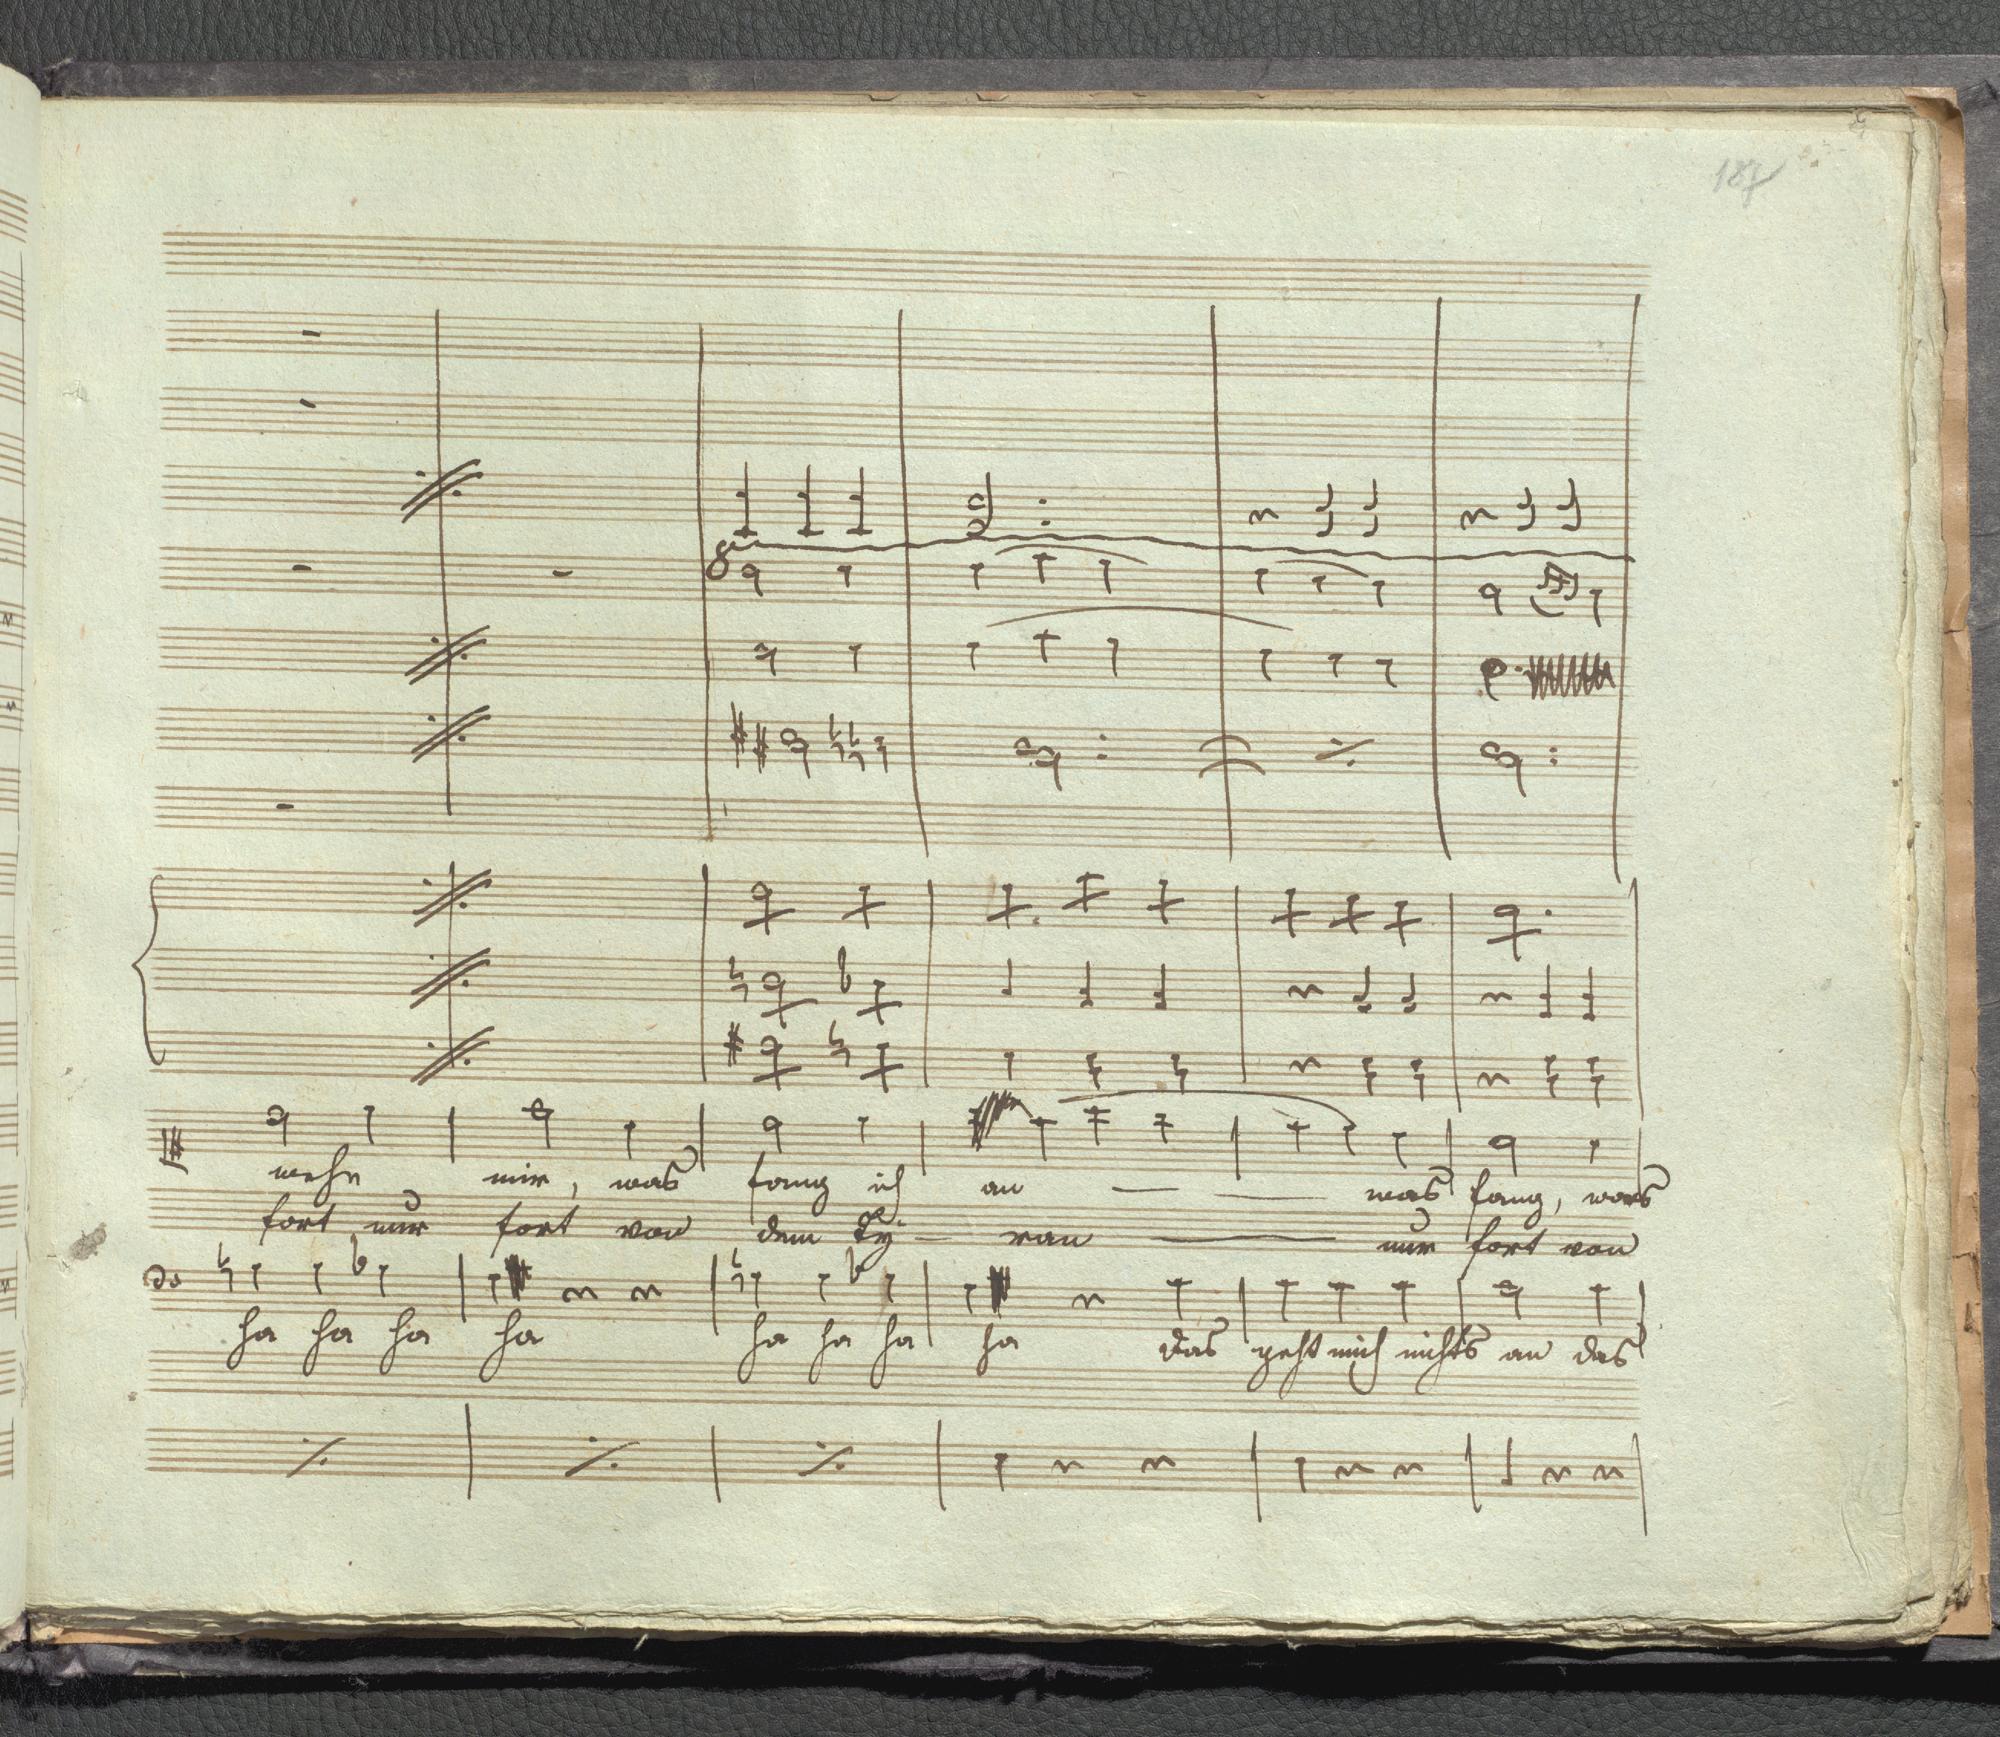 187
8
wehe mir, was fang ich an — — was fang, was
fort nur fort von dem Ty- — ran — nur fort von
ha ha ha ha ha ha ha ha das geht mich nichts an das